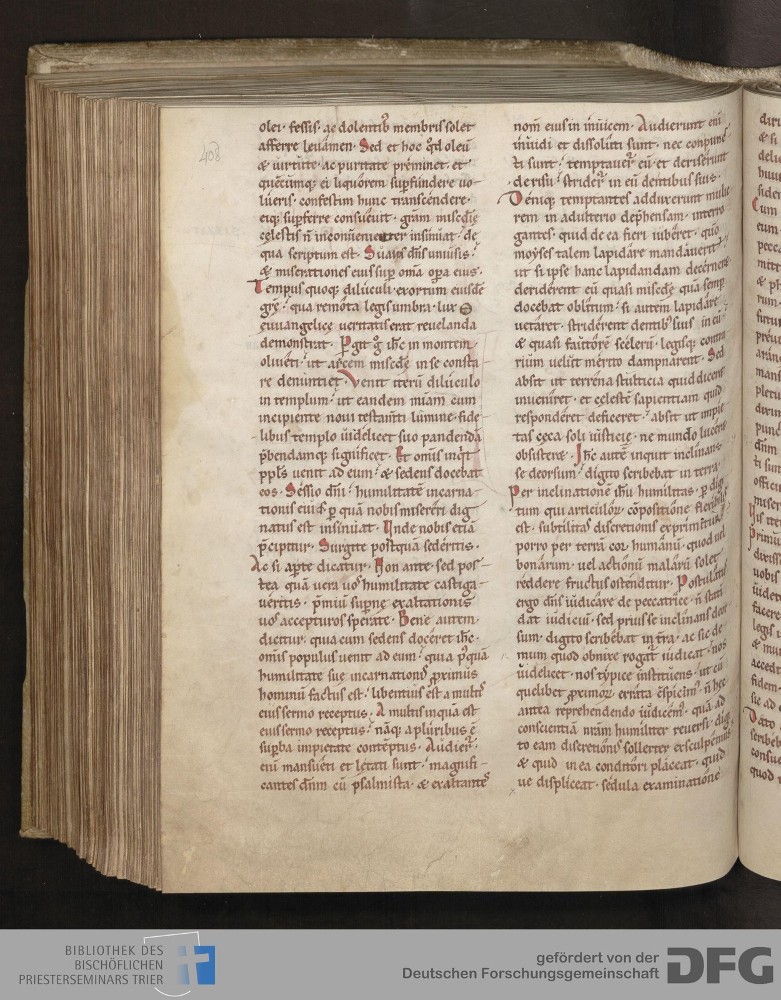 408
olei · fessis · ac dolentib' membris solet
afferre leuamen · Sed et hoc qd oleū
& uirtute · ac puritate preminet · et
quēcumq; ei liquorem supfundere uo-
lueris · confestim hunc transcendere ·
eiq; supferre consueuit · grām miscdię
cęlestis n̄ inconuenienter insinuat · de
qua scriptum est · Suauis dn̄s uniusis ·
& miserationes eius sup om̄a opa eius ·
Tempus quoq; diluculi · exortum eiusdē
grę · qua remota legis umbra · lux
euuangelicę ueritatis erat reuelanda
demonstrat · Pgit g ihc in montem
oliueti · ut arcem miscdię in se consta
re denuntiet · Venit iterū diluculo
in templum · ut eandem miām cum
incipiente noui testamti lumine · fide-
libus templo uidelicet suo pandendā
pbendamq; significet · Et omis inqt
ppls uenit ad eum · & sedens docebat
eos · Sessio dn̄i · humilitatē incarna-
tionis eius p quā nobis misereri dig
natus est insinuat · Unde nobis etiā
pcipitur · Surgite postquā sederitis ·
Ac si apte dicatur · Non ante · sed pos-
tea quā uera uos humilitate castiga-
ueritis · pmiū supnę exaltationis
uos accepturos sperate · Bene autem
dicitur · quia cum sedens doceret ihc ·
omis populus uenit ad eum · quia pquā
humilitate suę incarnationis proximus
hominū factus est · libentius est a multis
eius sermo receptus · A multis inqua est
eius sermo receptus · nāq; a pluribus ē
supba impietate contēptus · Audier
eni mansueti et lętati sunt · magnifi-
cantes dn̄m cū psalmista · & exaltantes
nom̄ eius in inuicem · Audierunt eni
inuidi et dissoluti sunt · nec conpunc
ti sunt · temptauer eū · et deriserunt
derisu · strider in eū dentibus suis ·
Deniq; temptantes adduxerunt mulie
rem in adulterio dephensam · interro
gantes · quid de ea fieri iuberet · quo
moyses talem lapidare mandauerit
ut si ipse hanc lapidandam decerneret
deriderent eū quasi miscdię quā semp
docebat oblitum · si autem lapidare
uetaret · striderent dentib' suis in eū
& quasi fautorē scelerū · legisq; contra
rium uelut merito dampnarent · Sed
absit ut terrena stulticia quid diceret
inueniret · et cęlestē sapientiam quid
responderet deficeret · absit ut impie
tas ceca soli iusticię · ne mundo luceret
obsistere · Ihc autē inquit inclinans
se deorsum · digito scribebat in terra ·
Per inclinationē ihu humilitas · p digi
tum qui articulorū cōpositione flexibilis
est · subtilitas discretionis exprimitur ·
porro per terrā cor humanū · quod uel
bonarum · uel actionū malarū solet
reddere fructus ostenditur · Postulatus
ergo dn̄s iudicare de peccatrice · n̄ stati
dat iudiciū · sed prius se inclinans deor
sum · digito scribebat in tra · ac sic de
mum quod obnixe rogat iudicat · nos
uidelicet · nos typice instituens · ut cū
quelibet proximorū errata cspicim' · n̄ hęc
antea reprehendendo iudicem' · quā ad
conscientiā nrām humiliter reuersi · digi
to eam discretionis sollerter exsculpemus
& quid in ea conditori placeat · quid
ue displiceat · sedula examinatione
BIBLIOTHEK DES
BISCHÖFLICHEN
PRIESTERSEMINARS TRIER
gefördert von der
Deutschen Forschungsgemeinschaft
DFG